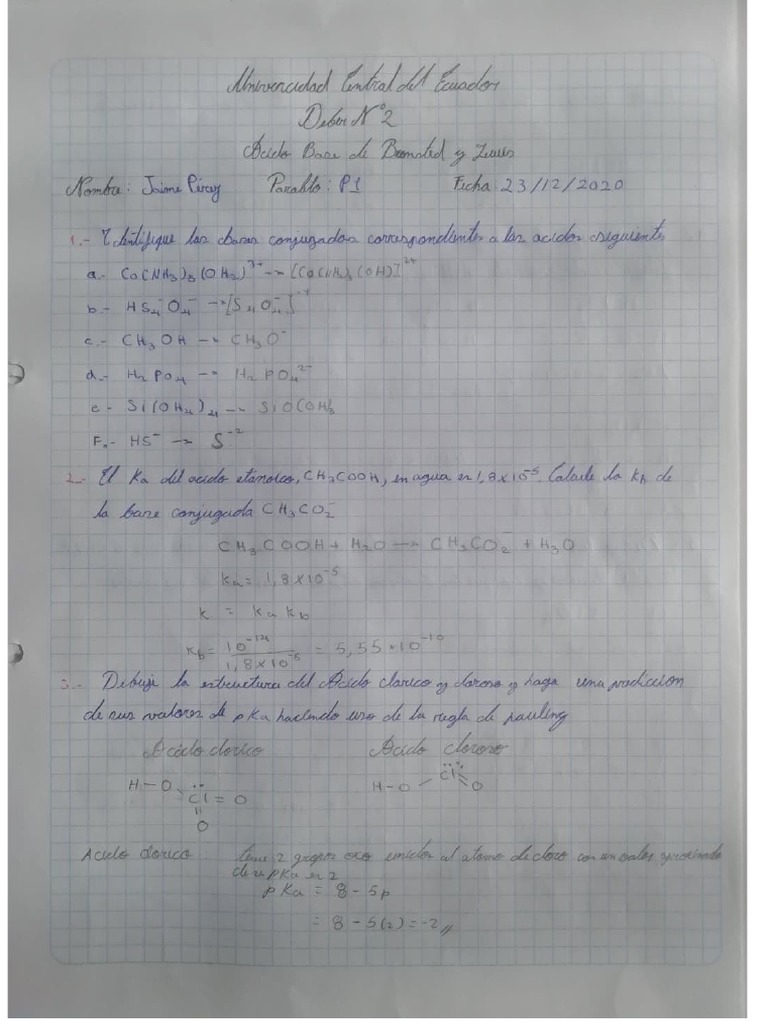 Univercidad Central del Ecuador
Deber N°2
Acido Base de Bronsted y Lewis
Nombre: Jaime Pirca Paralelo: P1 Fecha: 23/12/2020
1.- Identifique las bases conjugadas correspondientes a los acidos siguientes
a.- Co(NH₃)₅(OH₂)³⁺ → [Co(NH₃)₅(OH)]²⁺
b.- HS₄⁻O₄⁻ → [S₄O₄⁻]⁻¹
c.- CH₃OH → CH₃O⁻
d.- H₂PO₄ → H₂PO₄²⁻
e.- Si(OH₄)₄ → SiO(OH)₃
F.- HS⁻ → S⁻²
2.- El Ka del acido etanoico, CH₃COOH, en agua es 1,8x10⁻⁵. Calcule la Kb de
la base conjugada CH₃CO₂⁻
CH₃COOH + H₂O → CH₃CO₂⁻ + H₃O
Ka = 1,8x10⁻⁵
K = Ka Kb
Kb = 10⁻¹⁴ / 1,8x10⁻⁵ = 5,55x10⁻¹⁰
3.- Dibuje la estructura del Acido clorico y cloroso y haga una prediccion
de sus valores de pKa haciendo uso de la regla de pauling
Acido clorico Acido cloroso
H-O Cl=O H-O Cl O
O
Acido clorico: tiene 2 grupos oxo unidos al atomo de cloro con un valor aproximado
de su pKa es 2
pKa = 8-5p
= 8-5(2)=-2//